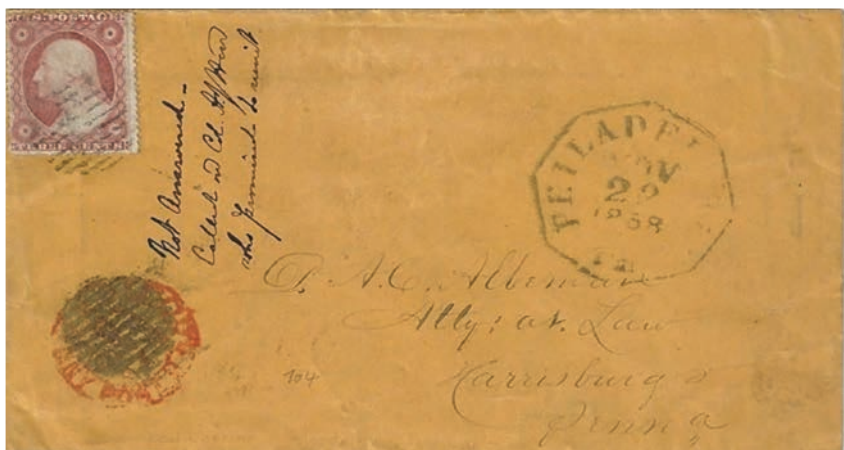 U.S. POSTAGE
THREE CENTS
Not Answered -
Called on
who promised to remit
PHILADEL
NOV
29
1858
Pa.
A. C. Alleman
Atty: at. Law
Harrisburg
Penna
104